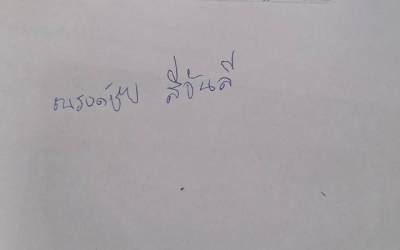 ณรงค์ชัย สีจันลี